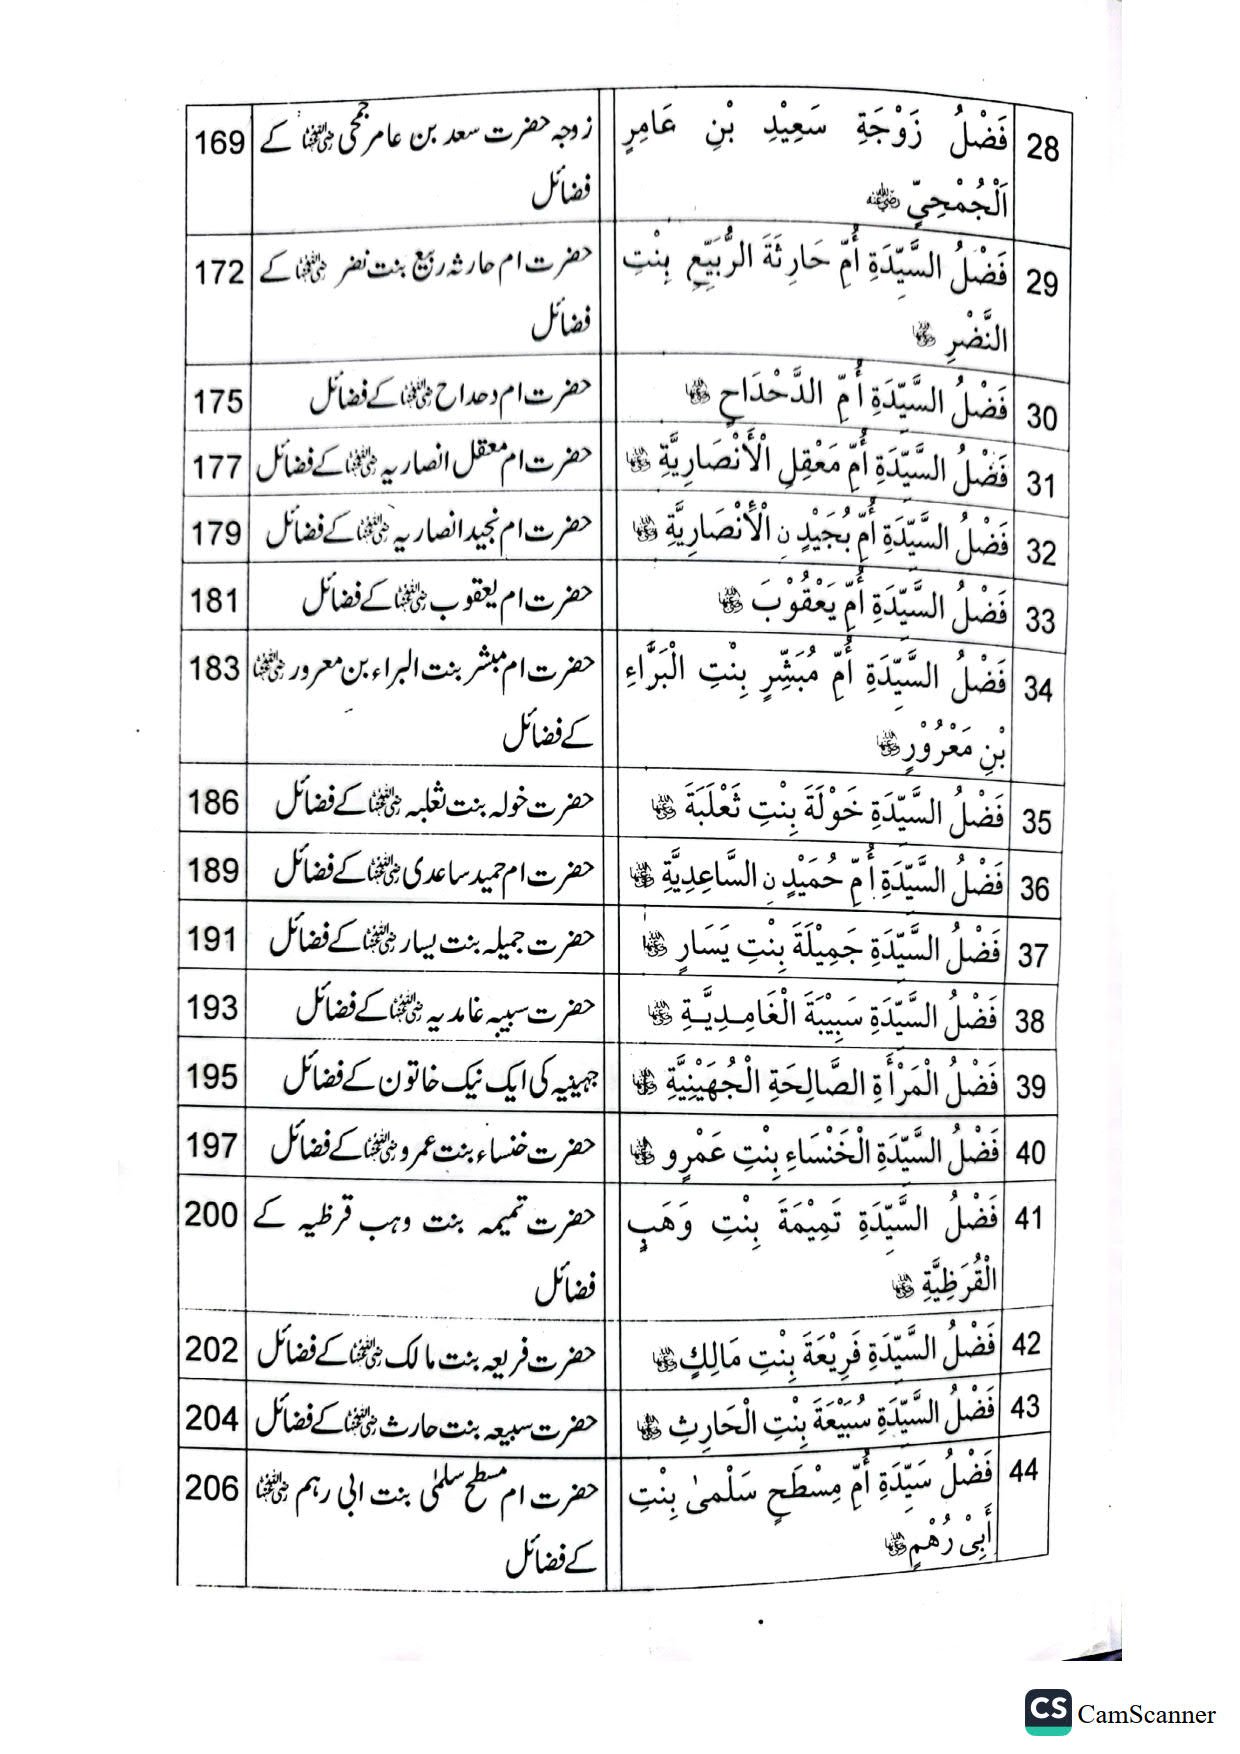 28 فَضْلُ زَوْجَةِ سَعِيْدِ بْنِ عَامِرٍ زوجہ حضرت سعد بن عامر جمحی رضی اللہ عنہا کے 169
اَلْجُمْحِيِّ رضی اللہ عنہ فضائل
29 فَضْلُ السَّيِّدَةِ أُمِّ حَارِثَةَ الرُّبَيِّعِ بِنْتِ حضرت ام حارثہ ربیع بنت نضر رضی اللہ عنہا کے 172
النَّضْرِ رضی اللہ عنہا فضائل
30 فَضْلُ السَّيِّدَةِ أُمِّ الدَّحْدَاحِ رضی اللہ عنہا حضرت ام دحداح رضی اللہ عنہا کے فضائل 175
31 فَضْلُ السَّيِّدَةِ أُمِّ مَعْقِلِ الْأَنْصَارِيَّةِ رضی اللہ عنہا حضرت ام معقل انصاریہ رضی اللہ عنہا کے فضائل 177
32 فَضْلُ السَّيِّدَةِ أُمِّ بُجَيْدِنِ الْأَنْصَارِيَّةِ رضی اللہ عنہا حضرت ام نجید انصاریہ رضی اللہ عنہا کے فضائل 179
33 فَضْلُ السَّيِّدَةِ أُمِّ يَعْقُوْبَ رضی اللہ عنہا حضرت ام یعقوب رضی اللہ عنہا کے فضائل 181
34 فَضْلُ السَّيِّدَةِ أُمِّ مُبَشِّرٍ بِنْتِ الْبَرَّاءِ حضرت ام مبشر بنت البراء بن معرور رضی اللہ عنہا 183
بْنِ مَعْرُوْرٍ رضی اللہ عنہا کے فضائل
35 فَضْلُ السَّيِّدَةِ خَوْلَةَ بِنْتِ ثَعْلَبَةَ رضی اللہ عنہا حضرت خولہ بنت ثعلبہ رضی اللہ عنہا کے فضائل 186
36 فَضْلُ السَّيِّدَةِ أُمِّ حُمَيْدِنِ السَّاعِدِيَّةِ رضی اللہ عنہا حضرت ام حمید ساعدی رضی اللہ عنہا کے فضائل 189
37 فَضْلُ السَّيِّدَةِ جَمِيْلَةَ بِنْتِ يَسَارٍ رضی اللہ عنہا حضرت جمیلہ بنت یسار رضی اللہ عنہا کے فضائل 191
38 فَضْلُ السَّيِّدَةِ سَبِيْبَةَ الْغَامِدِيَّةِ رضی اللہ عنہا حضرت سبیبہ غامدیہ رضی اللہ عنہا کے فضائل 193
39 فَضْلُ الْمَرْأَةِ الصَّالِحَةِ الْجُهَيْنِيَّةِ رضی اللہ عنہا جہینیہ کی ایک نیک خاتون کے فضائل 195
40 فَضْلُ السَّيِّدَةِ الْخَنْسَاءِ بِنْتِ عَمْرٍو رضی اللہ عنہا حضرت خنساء بنت عمرو رضی اللہ عنہا کے فضائل 197
41 فَضْلُ السَّيِّدَةِ تَمِيْمَةَ بِنْتِ وَهَبٍ حضرت تمیمہ بنت وہب قرظیہ کے 200
الْقُرَظِيَّةِ رضی اللہ عنہا فضائل
42 فَضْلُ السَّيِّدَةِ فَرِيْعَةَ بِنْتِ مَالِكٍ رضی اللہ عنہا حضرت فریعہ بنت مالک رضی اللہ عنہا کے فضائل 202
43 فَضْلُ السَّيِّدَةِ سُبَيْعَةَ بِنْتِ الْحَارِثِ رضی اللہ عنہا حضرت سبیعہ بنت حارث رضی اللہ عنہا کے فضائل 204
44 فَضْلُ سَيِّدَةِ أُمِّ مِسْطَحٍ سَلْمىٰ بِنْتِ حضرت ام مسطح سلمیٰ بنت ابی رہم رضی اللہ عنہا 206
أَبِيْ رُهْمٍ رضی اللہ عنہا کے فضائل
CS CamScanner